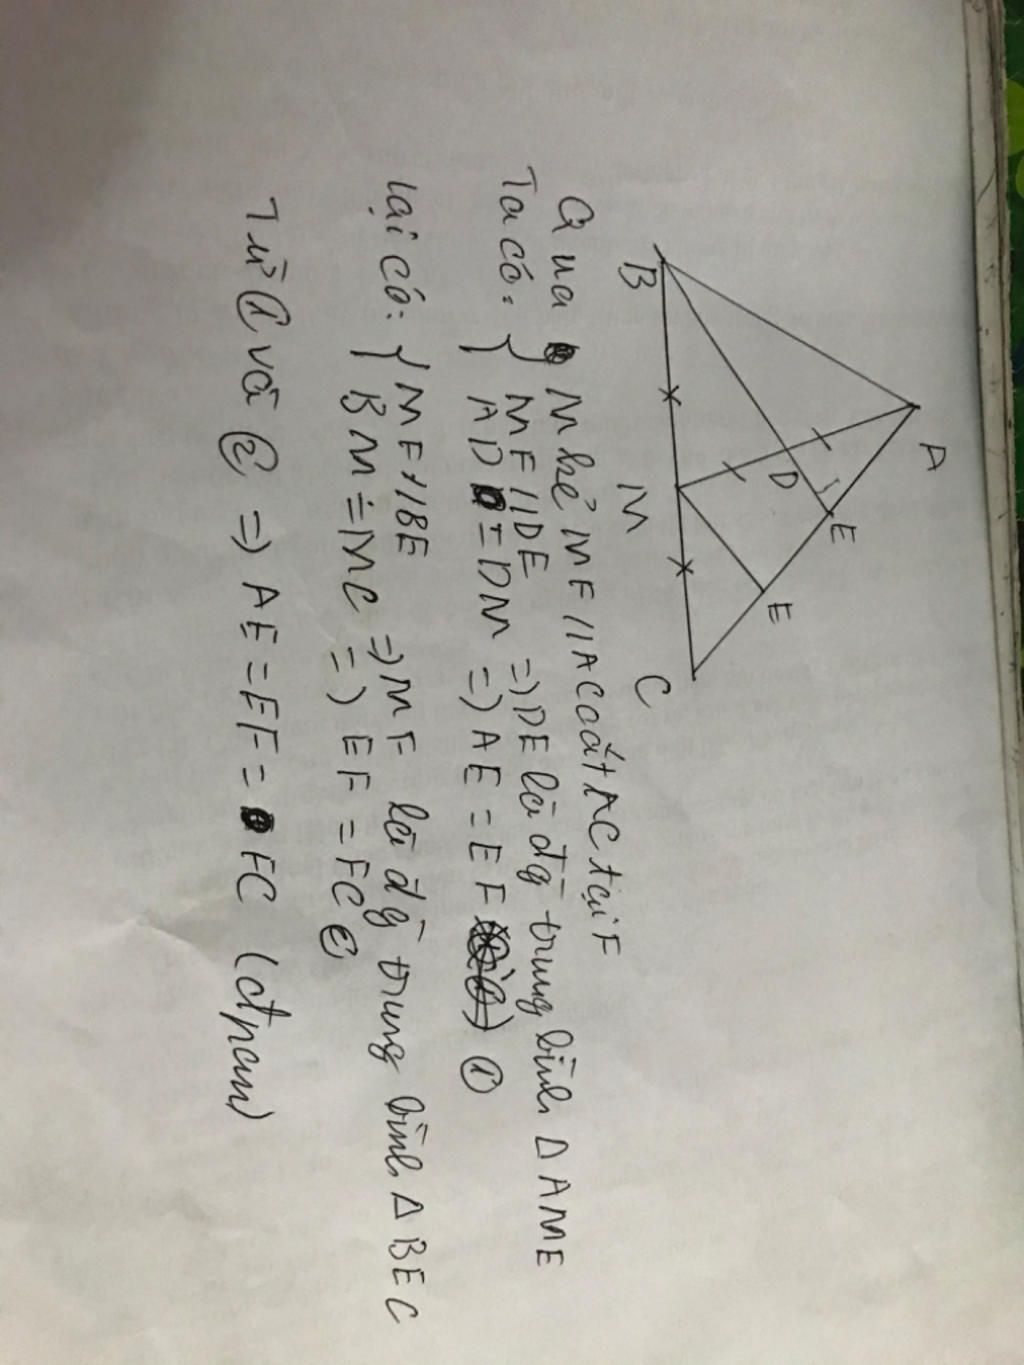 A
E
D
E
B
M
C
Qua M kẻ MF // AC cắt AC tại F
Ta có: { MF // DE => DE là đg trung bình Δ AME
AD = DM => AE = EF ①
Lại có: { MF // BE => MF là đg trung bình Δ BEC
BM = MC => EF = FC ②
Từ ① và ② => AE = EF = FC (đpcm)